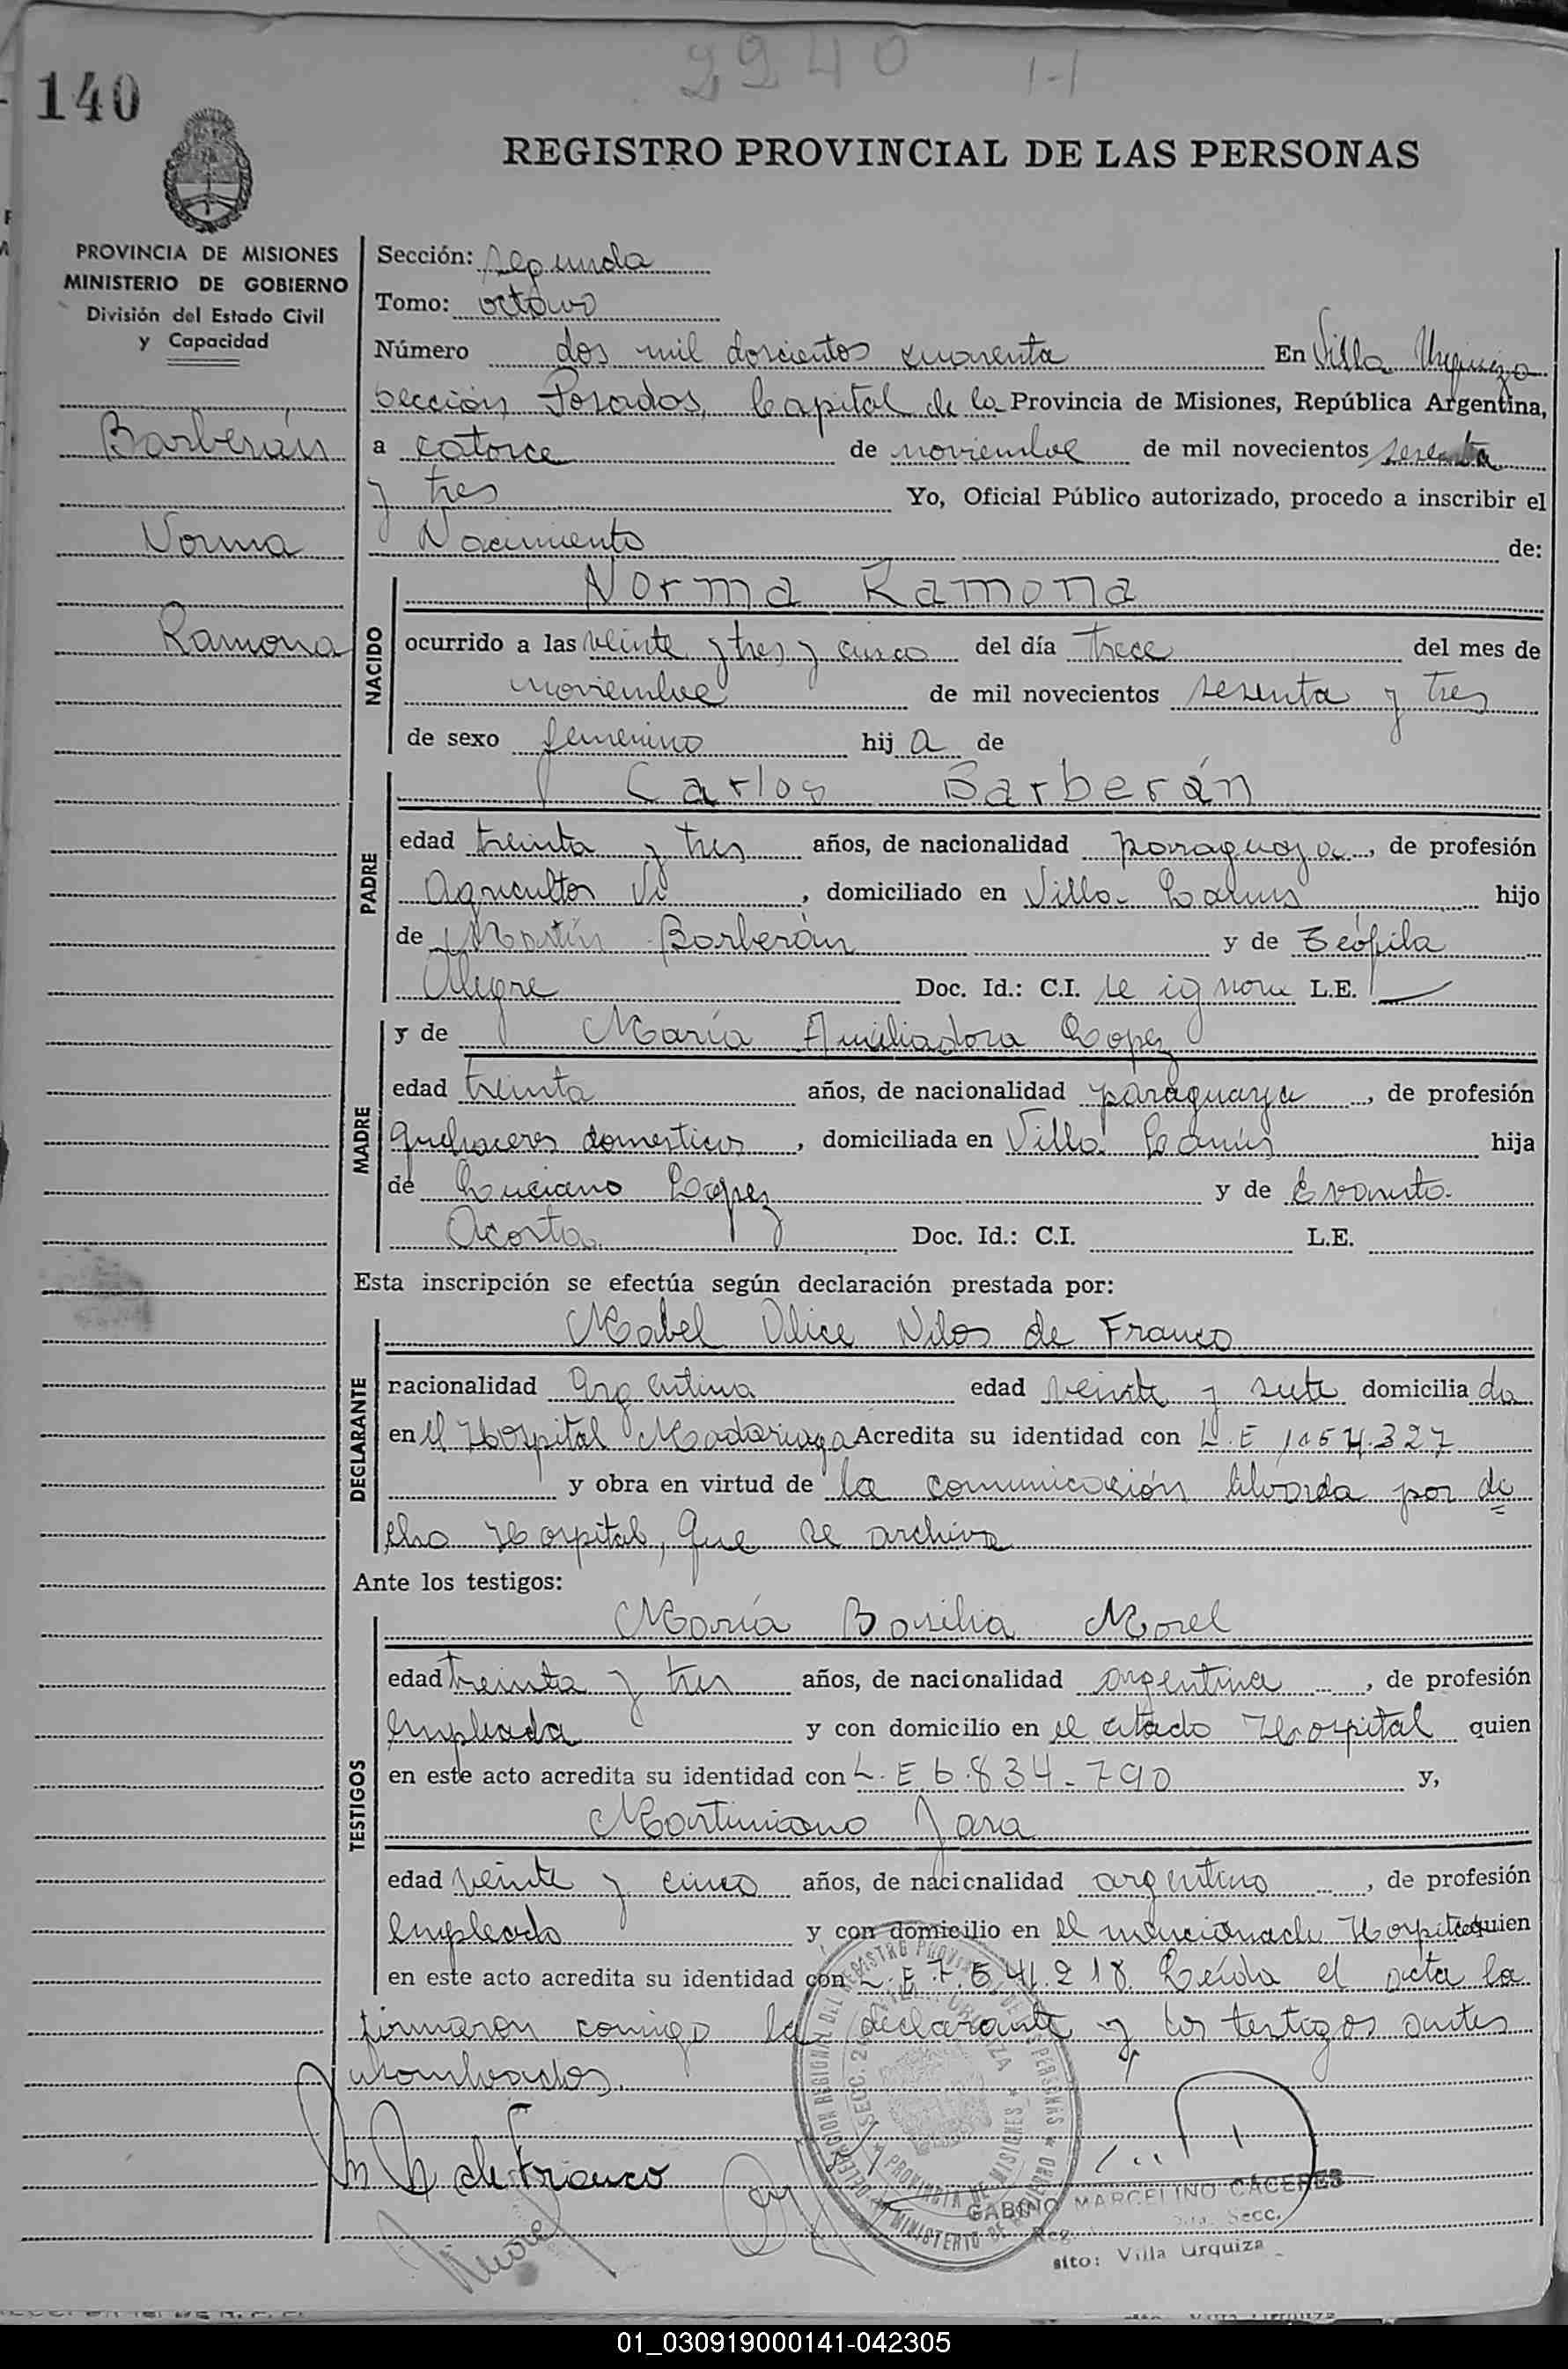 2240 1-1
140
REGISTRO PROVINCIAL DE LAS PERSONAS
PROVINCIA DE MISIONES
MINISTERIO DE GOBIERNO
División del Estado Civil
y Capacidad
Barberán
Norma
Ramona
Sección: segunda
Tomo: octavo
Número dos mil doscientos cuarenta En Villa Urquiza
Sección, Posadas, Capital de la Provincia de Misiones, República Argentina,
a catorce de noviembre de mil novecientos sesenta
y tres Yo, Oficial Público autorizado, procedo a inscribir el
Nacimiento de:
NACIDO
Norma Ramona
ocurrido a las veinte y tres y cinco del día trece del mes de
noviembre de mil novecientos sesenta y tres
de sexo femenino hij a de
PADRE
Carlos Barberán
edad treinta y tres años, de nacionalidad paraguaya, de profesión
Agricultor, domiciliado en Villa Lanus hijo
de Martín Barberán y de Teófila
Alegre Doc. Id.: C.I. se ignora L.E. —
MADRE
y de María Auxiliadora Lopez
edad treinta años, de nacionalidad paraguaya, de profesión
quehaceres domesticos, domiciliada en Villa Lanús hija
de Luciano Lopez y de Evarista
Acosta Doc. Id.: C.I. L.E.
Esta inscripción se efectúa según declaración prestada por:
DECLARANTE
Mabel Alice de Franco
nacionalidad Argentina edad veinte y siete domicilia da
en el Hospital Madariaga Acredita su identidad con L.E 1.154.327
y obra en virtud de la comunicación librada por di
cho Hospital, que se archiva
Ante los testigos:
TESTIGOS
María Basilia Morel
edad treinta y tres años, de nacionalidad argentina, de profesión
empleada y con domicilio en el citado Hospital quien
en este acto acredita su identidad con L.E 6.834.790 y,
Martiniano Jara
edad veinte y cinco años, de nacionalidad argentino, de profesión
empleado y con domicilio en el mencionado Hospital quien
en este acto acredita su identidad con L.E 7.541.218. Leída el acta la
firmaron comigo la declarante y los testigos antes
nombrados.
de Franco
DELEGACION REGIONAL DEL REGISTRO PROVINCIAL DE LAS PERSONAS * MINISTERIO DE GOBIERNO *
SECC. 2a VILLA URQUIZA * PROVINCIA DE MISIONES *
GABINO MARCELINO CACERES
Secc.
sito: Villa Urquiza
01_030919000141-042305